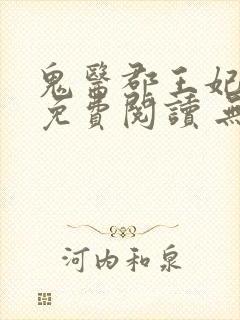 鬼醫郡王妃
免費閱讀 無
河内和泉